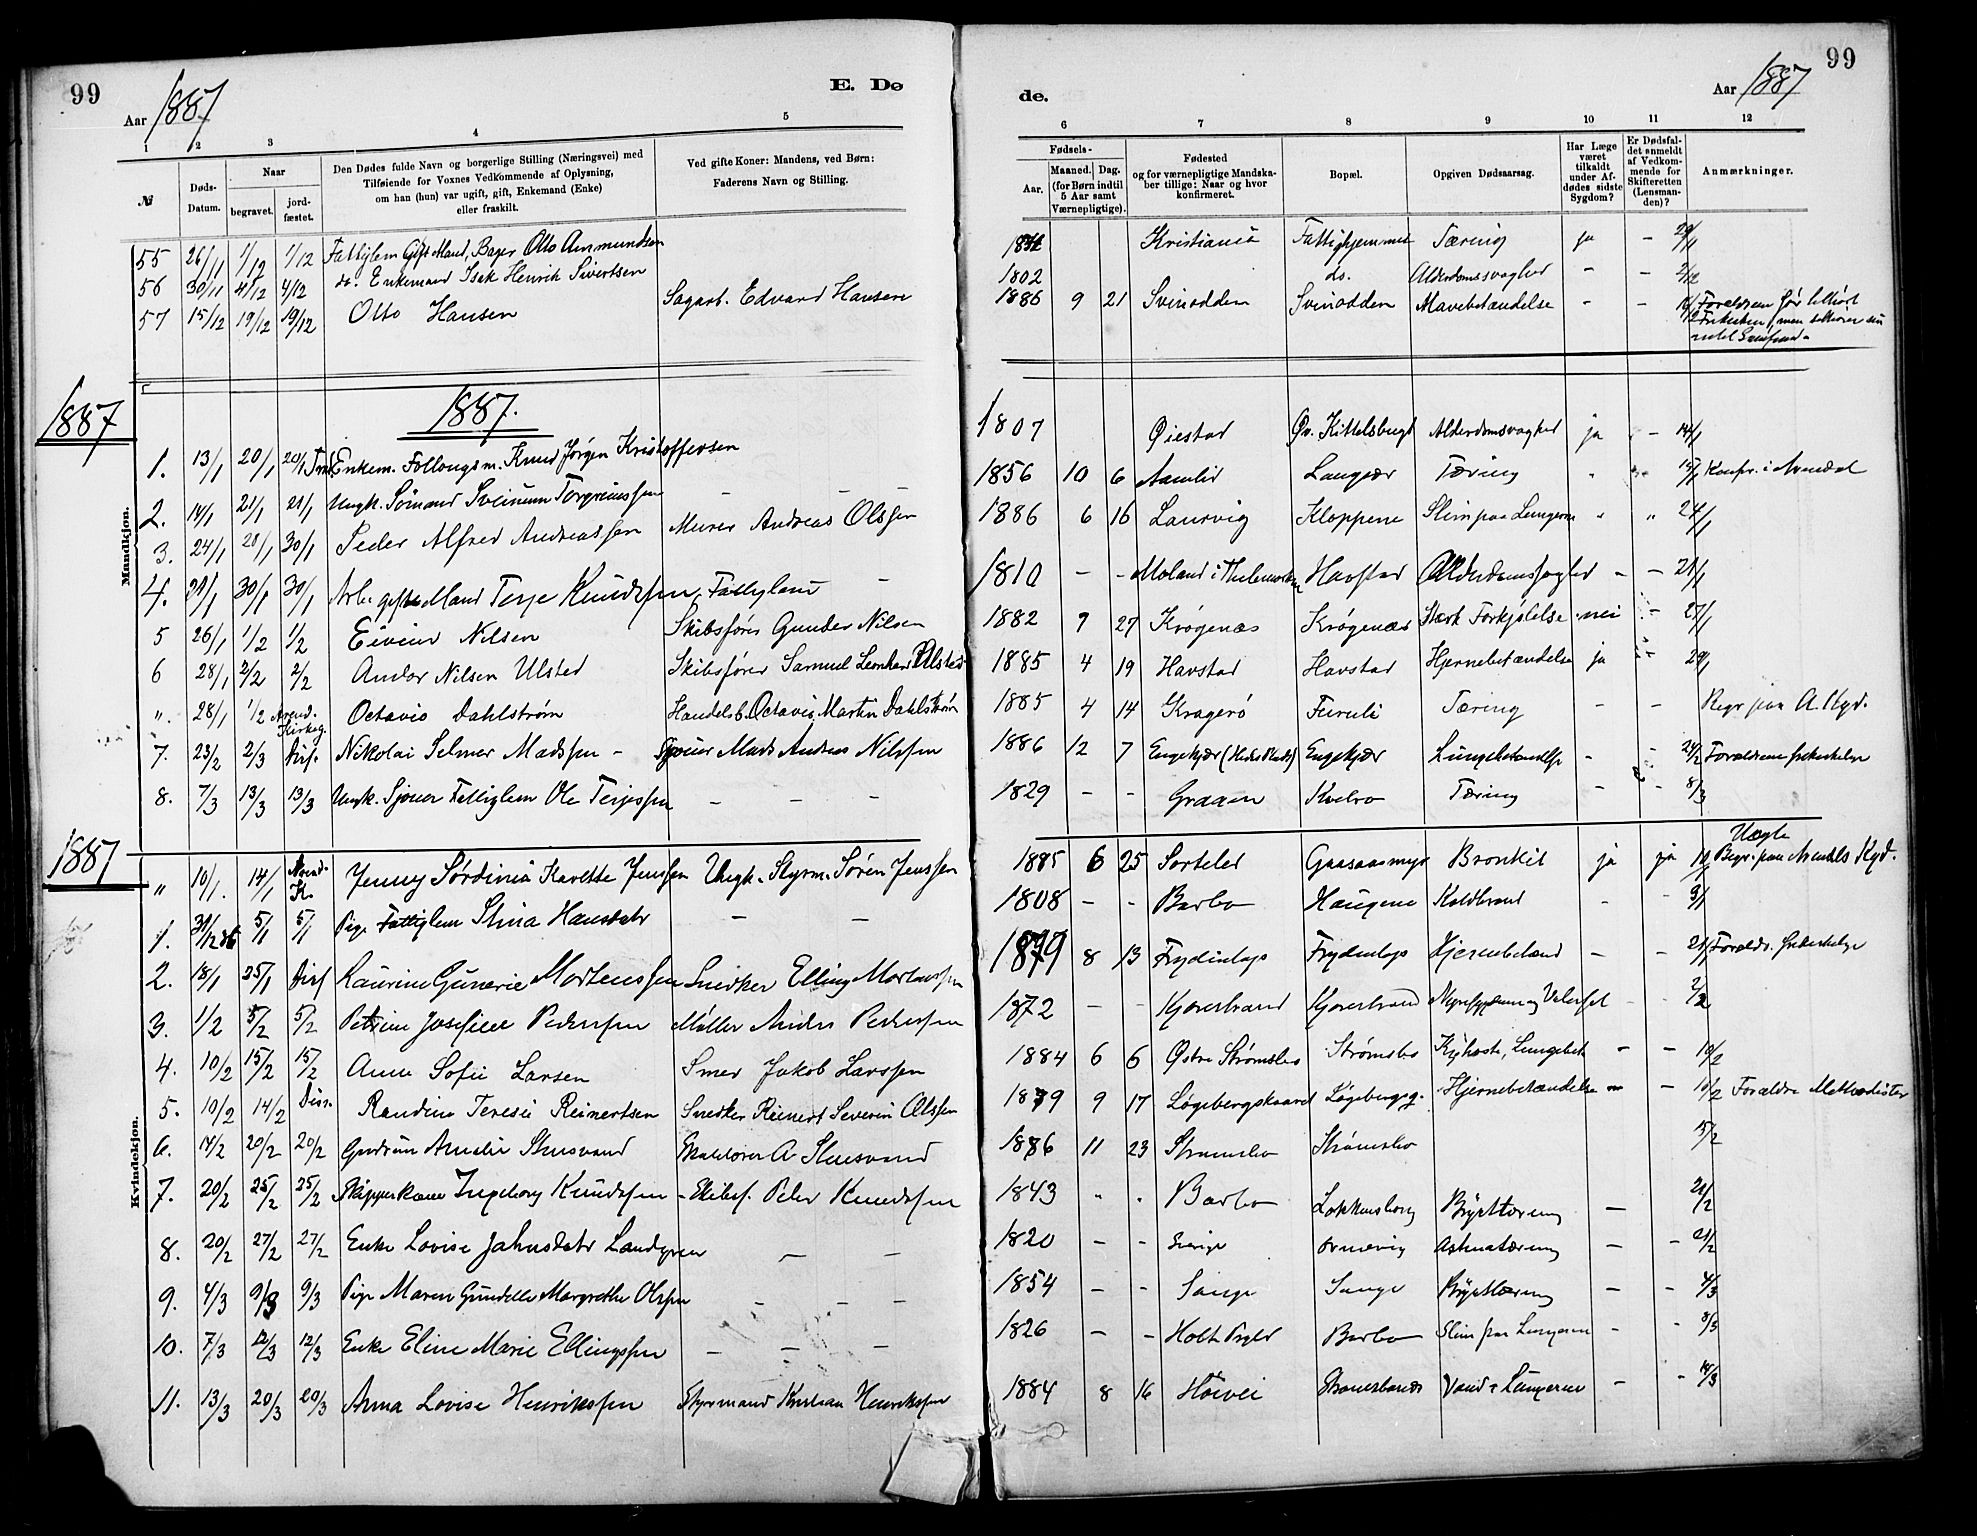 99
Aar 1887
E. Dø
de.
Aar 1887
99
1 2 3 4 5 6 7 8 9 10 11 12
№
Døds-Datum.
Naar
begravet.
jord-fæstet.
Den Dødes fulde Navn og borgerlige Stilling (Næringsvei) med
Tilføiende for Voxnes Vedkommende af Oplysning,
om han (hun) var ugift, gift, Enkemand (Enke)
eller fraskilt.
Ved gifte Koner: Mandens, ved Børn:
Faderens Navn og Stilling.
Fødsels-
Aar.
Maaned. Dag.
(for Børn indtil
5 Aar samt
Værnepligtige).
Fødested
og for værnepligtige Mandska-
ber tillige: Naar og hvor
konfirmeret.
Bopæl.
Opgiven Dødsaarsag.
Har Læge
været
tilkaldt
under Af-
dødes sidste
Sygdom?
Er Dødsfal-
det anmeldt
af Vedkom-
mende for
Skifteretten
(Lensman-
den)?
Anmærkninger.
55 26/11 1/12 1/12 Fattiglem Gift Mand, Otto Ammundsen Kristiania Fattighjemmet Tæring ja - 29/11
56 30/11 4/12 4/12 do. Enkemand Isak Henrik Sivertsen 1802 do. Alderdomssvaghed - - 2/12
57 15/12 19/12 19/12 Otto Hansen Sagarb. Edvard Hansen 1886 9 21 Svinodden Svinodden Mavebetændelse - - Forældrene før tilhørt
Frikirken, men
1887
1887.
Mandkjøn.
1. 13/1 20/1 20/1 Enkem. Knud Jørgen Kristoffersen 1807 Øiestad Øv. Kittelsbugt Alderdomsvaghed ja - 14/1
2. 14/1 21/1 21/1 Ungk. Sømand Sveinum Torgrimssen - - - 1856 10 6 Aamlid Langsær Tæring 15/1 Konfr. i Arendal
3. 24/1 28/1 30/1 Peder Alfred Andreassen Murer Andreas Olssen 1886 6 16 Laurvig Kloppene Slim paa Lungerne " " 24/1
4. 21/1 30/1 30/1 Arb. gift Mand Terje Knudssen, Fattiglem - 1810 - - Moland i Thelemarken Havstad Alderdomssvaghed - - 21/1
5 26/1 1/2 1/2 Eivind Nilsen Skibsfører Gunder Nilsen 1882 9 27 Krøgenæs Krøgenæs Stærk Forkjølelse nei - 27/1
6 28/1 2/2 2/2 Andor Nilsen Ulsted Skibsfører Samuel Lenhard Ulsted 1885 4 19 Havstad Havstad Hjernebetændelse ja 29/1
". 28/1 1/2 Arend. Kirkeg. Octavio Dahlstrøm Handelsb. Octavio Martin Dahlstrøm 1885 4 14 Kragerø Furuli Tæring - - Begr paa A. Kgd.
7. 23/2 2/3 Diss. Nikolai Selmer Madssen - Sjøuer Mads Andreas Nilssen 1886 12 7 Engekjær Engekjær Lungebetændelse - - 24/2 Forældrene frikirkelige
8. 7/3 13/3 13/3 Ungk. Sjøuer Fattiglem Ole Terjessen - - - 1829 - - Graaen Tæring - - 8/3
1887
Kvindekjøn.
" 10/1. 14/1 Arend. K. Jenny Sørdinia Karette Jenssen Ungk. Styrm. Søren Jenssen 1885 6 25 Sorteled Gaasaasmyr Bronkit ja ja Uægte
Begr. paa Arendals Kgd.
1. 31/12 86 5/1 5/1 Pige Fattiglem Stina Hansdatr - - 1808 - - Barbo Haugene Koldbrand - - 3/1
2. 18/1 25/1 Diss Laurine Gunerie Mortenssen Snedker Elling Mortenssen 1879 8 13 Frydenlys Frydenlys Hjernebetænd - - 21/1 Forældr. frikirkelige
3. 1/2 5/2 5/2 Petrine Josefine Pedersen Møller Anders Pedersen 1872 - - Kjørestrand Kjørestrand - - 2/2
4. 10/2 15/2 15/2 Anne Sofie Larsen Smed Jakob Larssen 1884 6 6 Østre Strømsbo Strømsbo Kighoste, Lungebet - - 10/2
5. 10/2 14/2 Diss. Randine Teresie Reinertsen Snedker Reinert Severin Olssen 1879 9 17 Løgebergskaard Løgebergsg. Hjernebetændelse - - 10/2 Forældre Methodister
6. 14/2 20/2 20/2 Gudrun Amelie 1886 11 23 Strømsbo Strømsbo 15/2
7. 20/2 25/2 25/2 Skipperkone Ingeborg Knudssen - Skibsf. Peder Knudssen 1843 " " Barbo Brysttæring - 21/2
8. 20/2 27/2 27/2 Enke Lovise Jahnsdatr Landgren - - 1820 - - Sverige Astmatæring - - 21/2
9. 4/3 9/3 9/3 Pige Maren Gundelle Margrethe Olssen - - - 1854 - - Songe Songe Brysttæring - - 4/3
10. 7/3 12/3 12/3 Enke Eline Marie Ellingssen - - - 1826 - - Holt Barbo Slim paa Lungerne - - 8/3
11. 13/3 20/3 20/3 Anna Lovise Henrikssen Styrmand Kristian Henrikssen 1884 8 16 Høivei Vand i Lungerne - - 14/3